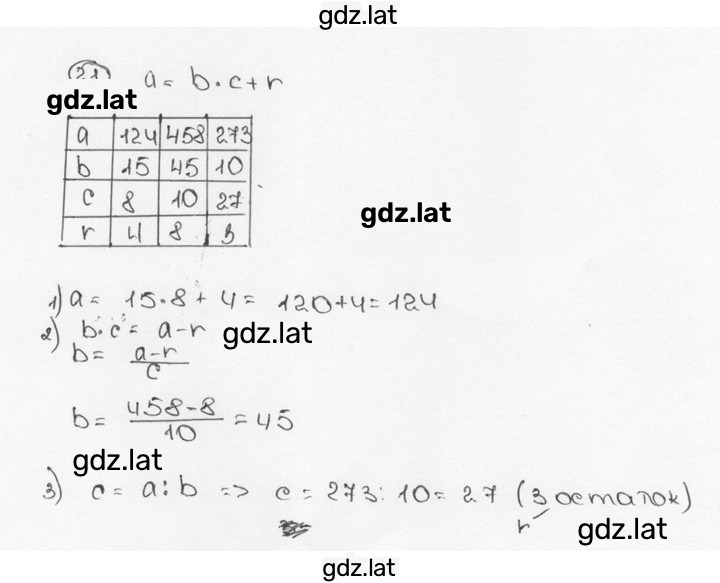 gdz.lat
21) a = b · c + r
gdz.lat
a 124 458 273
b 15 45 10
c 8 10 27
gdz.lat
r 4 8 3
1) a = 15 · 8 + 4 = 120 + 4 = 124
2) b · c = a - r
gdz.lat
b = a - r / c
b = 458 - 8 / 10 = 45
gdz.lat
3) c = a : b => c = 273 : 10 = 27 (3 остаток)
r
gdz.lat
gdz.lat